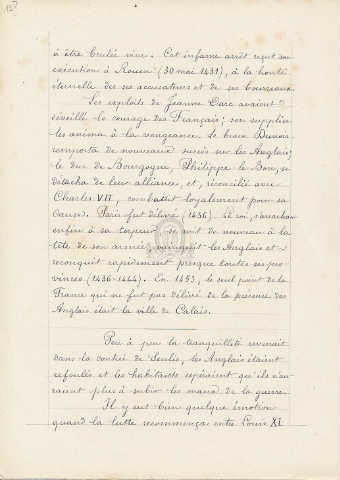 à être brûlée vive. Cet infâme arrêt reçut son
exécution à Rouen (30 mai 1431), à la honte
éternelle de ses accusateurs et de ses bourreaux.
Les exploits de Jeanne Darc avaient
réveillé le courage des Français ; son supplice
les anima à la vengeance. Le brave Dunois
remporta de nouveaux succès sur les Anglais ;
le duc de Bourgogne, Philippe le Bon, se
détacha de leur alliance, et, réconcilié avec
Charles VII, combattit loyalement pour sa
cause. Paris fut délivré (1436). Le roi, s'arrachant
enfin à sa torpeur se mit de nouveau à la
tête de son armée, vainquit les Anglais et
reconquit rapidement presque toutes ses pro-
vinces (1436-1444). En 1453, le seul point de la
France qui ne fut pas délivré de la présence des
Anglais était la ville de Calais.
Peu à peu la tranquillité revenait
dans la contrée de Senlis, les Anglais étaient
refoulés et les habitants espéraient qu'ils n'au-
raient plus à subir les maux de la guerre.
Il y eut bien quelque émotion
quand la lutte recommença entre Louis XI